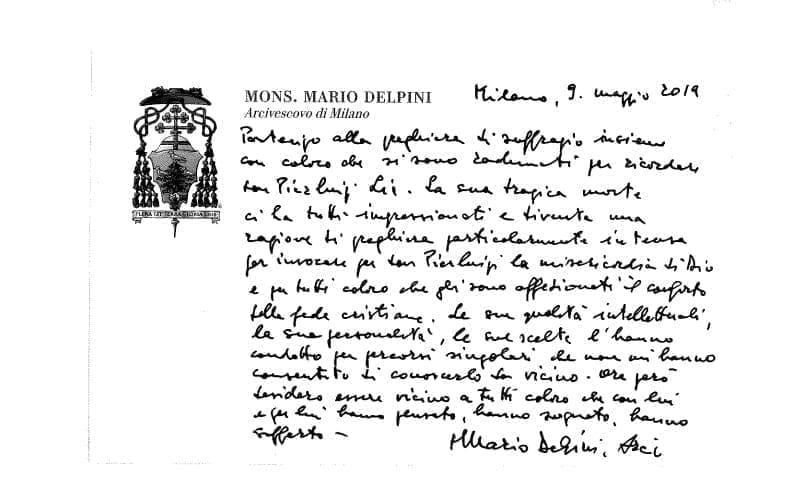 MONS. MARIO DELPINI
Arcivescovo di Milano
Milano, 9. maggio 2019
PLENA EST TERRA GLORIA EIUS
Partecipo alla preghiera di suffragio insieme
con coloro che si sono radunati per ricordare
don Pierluigi Lia. La sua tragica morte
ci ha tutti impressionati e diventa una
ragione di preghiera particolarmente intensa
per invocare per don Pierluigi la misericordia di Dio
e per tutti coloro che gli sono affezionati il conforto
della fede cristiana. Le sue qualità intellettuali,
la sua personalità, le sue scelte l'hanno
condotto per percorsi singolari che non mi hanno
consentito di conoscerlo da vicino. Ora però
desidero essere vicino a tutti coloro che con lui
e per lui hanno pensato, hanno sognato, hanno
sofferto –
+ Mario Delpini, Arci